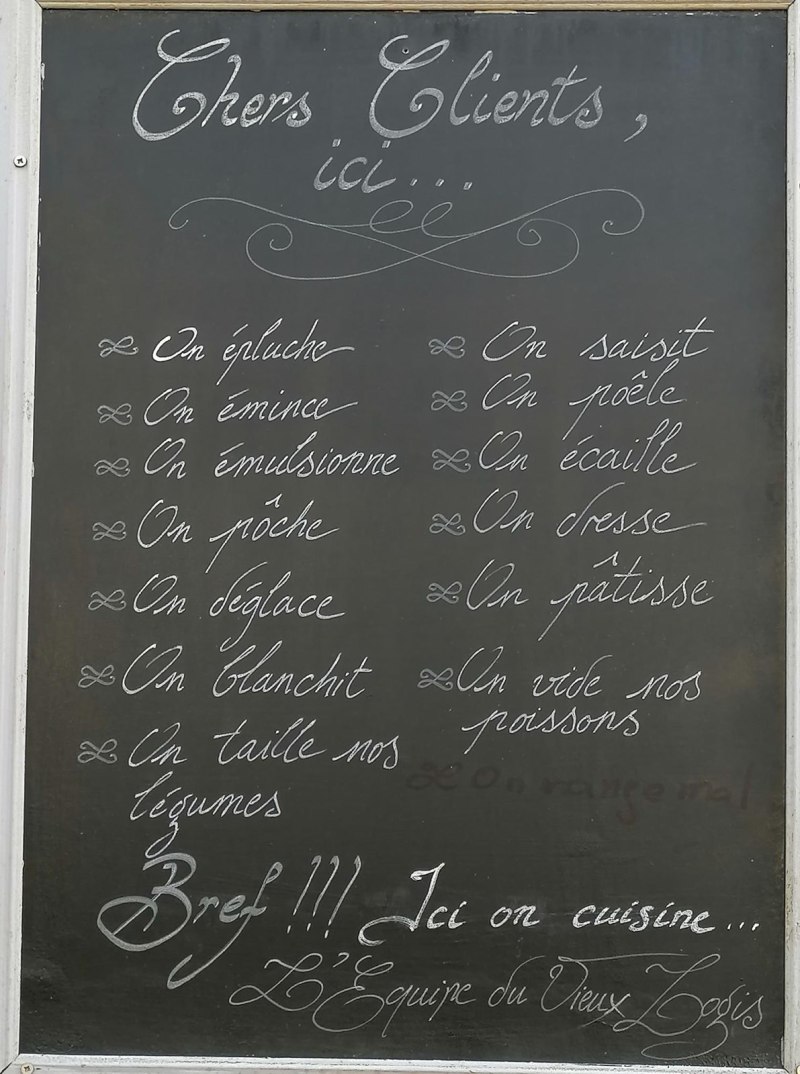 Chers Clients,
ici...
On épluche
On émince
On émulsionne
On pôche
On déglace
On blanchit
On taille nos
légumes
On saisit
On poêle
On écaille
On dresse
On pâtisse
On vide nos
poissons
On range mal
Bref !!! Ici on cuisine...
L'Equipe du Vieux Logis